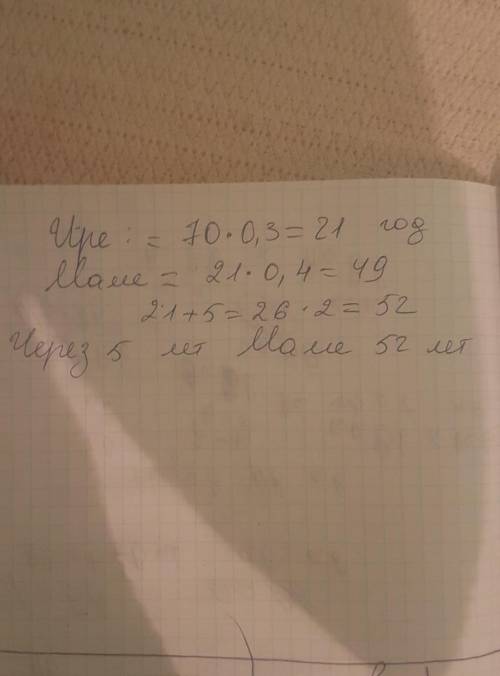 Ире : = 70 · 0,3 = 21 год
Маме = 21 · 0,4 = 49
21 + 5 = 26 · 2 = 52
Через 5 лет Маме 52 лет